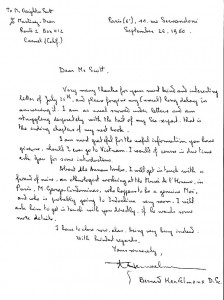 To M. Gaighlin Scott
% Marilyn Dean
Route 2 Box 412
Carmel (Calif.)
Paris (6e), 11, rue Servandoni
September 26, 1960.
Dear Mr Scott,
Very many thanks for your most kind and interesting
letter of July 25th, and please forgive my (normal) long delay in
answering it. I am as usual snowed under letters and am
struggling desperately with the last of my Sea serpent. that is
the ending chapter of my next book.
I am most grateful for the useful informations you have
given me. Should I ever go to Vietnam I would of course in due time
ask you for some introductions.
About the Annam Condor, I will get in touch with a
friend of mine, an ethnologist working at the Musée de l'Homme, in
Paris, M. Georges Condominas, who happens to be a genuine Moï,
and who is probably going to Indochina very soon. I will
ask him to get in touch with you directly, if he wants some
more details.
I have to close now, alas, being very busy indeed.
With kindest regards,
Yours sincerely,
Bernard Heuvelmans D.Sc.